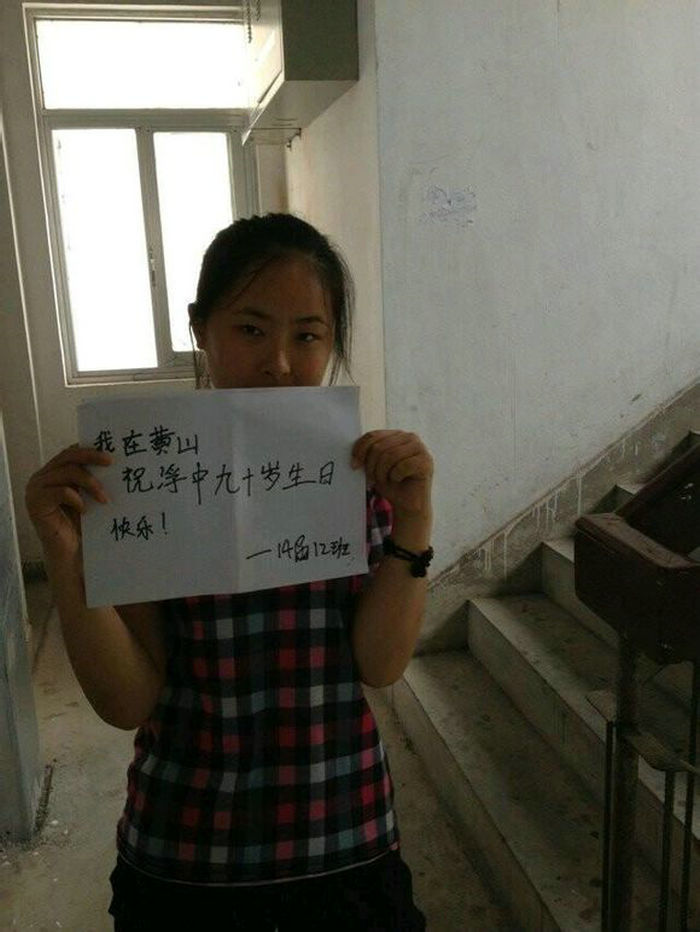 我在黄山
祝浮中九十岁生日
快乐！
—14届12班